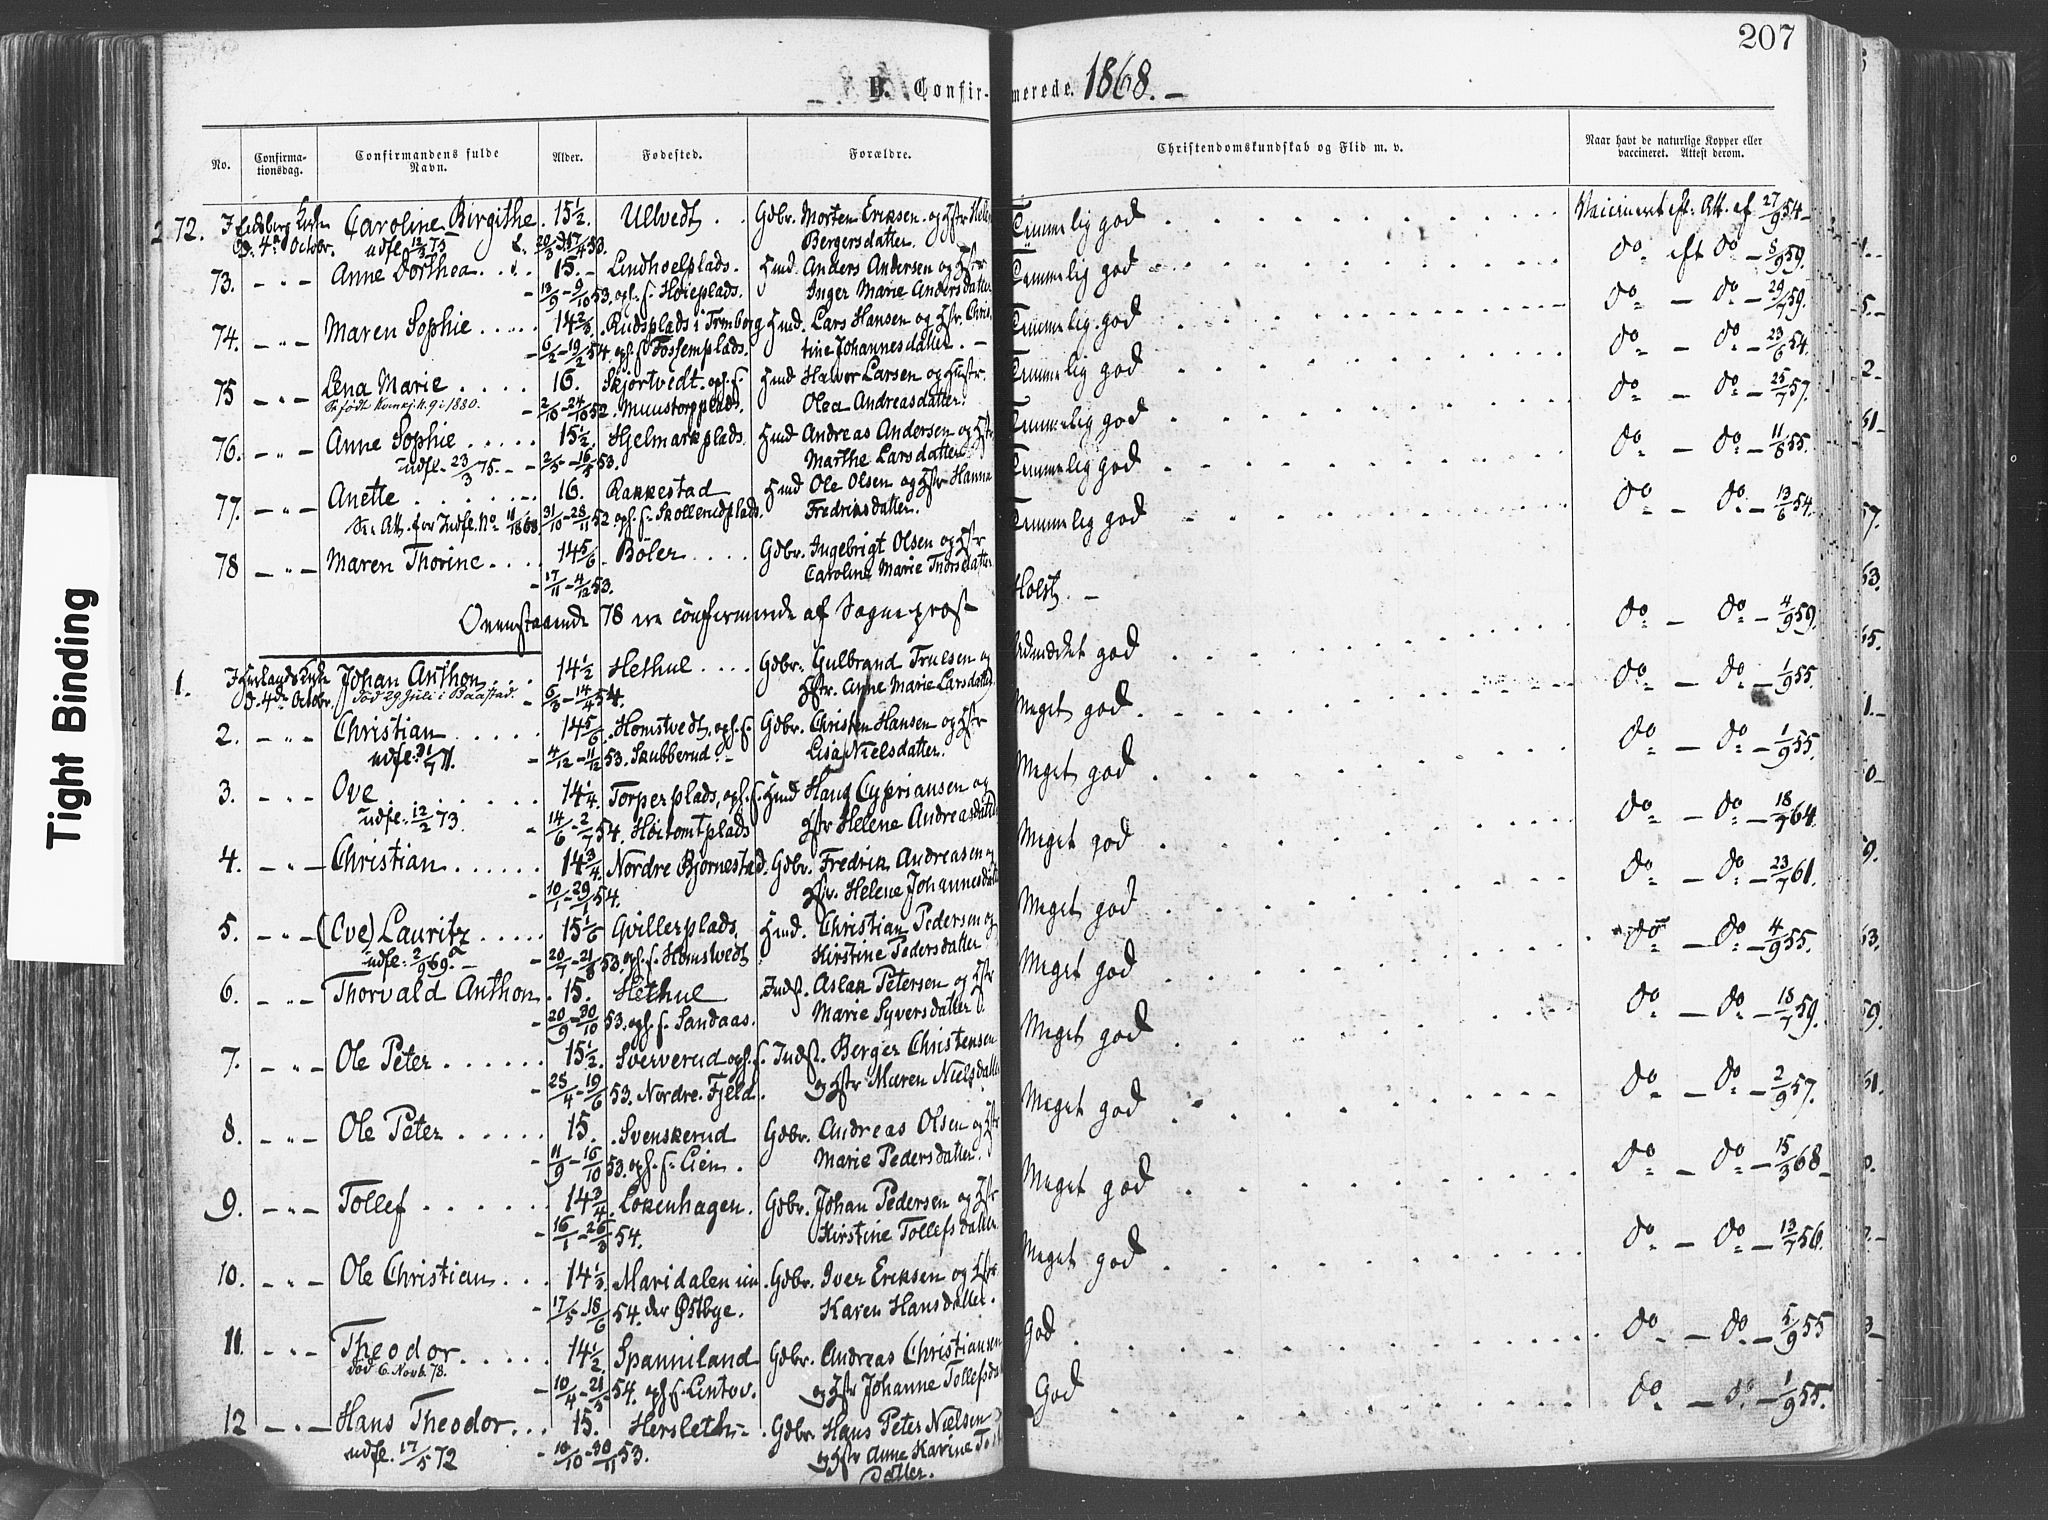 207
B. Confirmerede. 1868.
No. Confirmationsdag. Confirmandens fulde Navn. Alder. Fødested. Forældre. Christendomskundskab og Flid m. v. Naar havt de naturlige Kopper eller vaccineret. Attest derom.
72. Caroline Birgithe. 15½. Ullvedt. Gdbr. Morten Eriksen og Hstr. Temmelig god Vaccineret eft. Att. af 27/9 54
D. 4de Octobr. udfl. 12/3 75 Bergersdatter.
73. Anne Dorthea. 15. Lindhoelplads. Hmd. Anders Andersen og Hstr Temmelig god do eft do 8/9 59.
13/9 - 9/10 53. oph. f. Høieplads. Inger Marie Andersdatter
74. Maren Sophie. 14 2/3. Rudsplads i Tromborg Hmd. Lars Hansen og Hstr. Chris- Temmelig god do do 29/7 59.
6/2 - 19/2 54. oph. f. Fossemplads. tine Johannesdatter.
75 Lena Marie. 16. Skjortvedt. oph. f. Hmd Halvor Larsen og Hustr. Temmelig god do do 23/6 54.
Se født Kvinkj. N. 9 i 1880. 2/10 - 24/10 52. Munstorpplads. Olea Andreasdatter.
76. Anne Sophie. 15½. Hjelmarkplads. Hmd Andreas Andersen og Hstr Temmelig god do do 25/7 57.
udfl. 23/3 75. 2/5 - 16/5 53. Marthe Larsdatter
77. Anette 16. Rakkestad Hmd Ole Olsen og Hstr Hanna Temmelig god do do 11/8 55.
Se Att. for Indfl. No 11/1868. 31/10 - 28/11 52 oph. f. Skollerudplads. Fredriksdatter.
78 Maren Thorine. 14 5/6. Böler Gdbr. Ingebrigt Olsen og Hstr Temmelig god do do 13/6 54.
17/11 - 4/12 53. Caroline Marie Thorsdatter
Ovenstaaende 78 ere confirmerede af Sognepræst Holst.
1. D. 4de Octobr. Johan Anthon. 14½ Hethul Gdbr. Gulbrand Truelsen og Udmærket god do do 4/9 59.
Død 29 Juli i Baastad. 6/3 - 14/4 54. Hstr. Anne Marie Larsdatter
2. Christian 14 5/6. Homstvedt. oph. f. Gdbr. Christen Hansen og Hstr Meget god do do 1/9 55.
udfl. 31/7 71. 4/12 - 11/12 53. Skubberud Lisa Nielsdatter.
3. Ove 14¼. Torperplads, oph. f. Hmd Hans Cypriansen og Meget god do do 1/9 55.
udfl. 12/2 73. 14/6 - 2/7 54. Höitomtplads Hstr Helene Andreasdatter
4. Christian 14¾ Nordre Bjørnestad. Gdbr. Fredrik Andreasen og Meget god do do 18/7 64.
10/1 - 29/1 54. Hstr. Helene Johannesdatter
5. (Ove) Lauritz 15 1/6 Gvillerplads. Hmd. Christian Pedersen og Meget god do do 23/7 61.
udfl. 2/9 69. 20/7 - 21/8 53. oph. f. Homstvedt Kirstine Pedersdatter
6. Thorvald Anthon. 15. Hethul Indst. Aslak Petersen og Hstr Meget god do do 4/9 55.
20/9 - 30/10 53. oph. f. Sandaas. Marie Syversdatter
7. Ole Peter 15½. Sververud oph. f. Indst. Berger Christensen Meget god do do 18/7 59.
25/4 - 19/6 53. Nordre Fjeld. og Hstr Maren Nielsdatter
8. Ole Peter 15. Svenskerud Gdbr. Andreas Olsen og Hstr Meget god do do 2/9 57.
11/9 - 16/10 53. oph. f. Lien. Marie Pedersdatter.
9. Tollef 14¾. Lökenhagen. Gdbr. Johan Pedersen og Hstr Meget god do do 15/3 68
16/1 - 26/3 54. Kirstine Tollefsdatter
10. Ole Christian 14 1/3 Maridalen un- Gdbr. Iver Eriksen og Hstr Meget god do do 13/7 56.
17/5 - 18/6 54. der Østbye. Karen Hansdatter.
11. Theodor 14½ Spanniland Gdbr. Andreas Christiansen God do do 5/9 55
død 6. Novb. 78. 10/4 - 21/5 54. oph. f. Lintov. og Hstr Johanne Tollefsdat
12 Hans Theodor. 15. Hersleth Gdbr. Hans Peter Nielsen God do do 1/9 55.
udfl. 17/5 72 10/10 - 30/11 53. og Hstr Anne Karine
datter.
Tight Binding